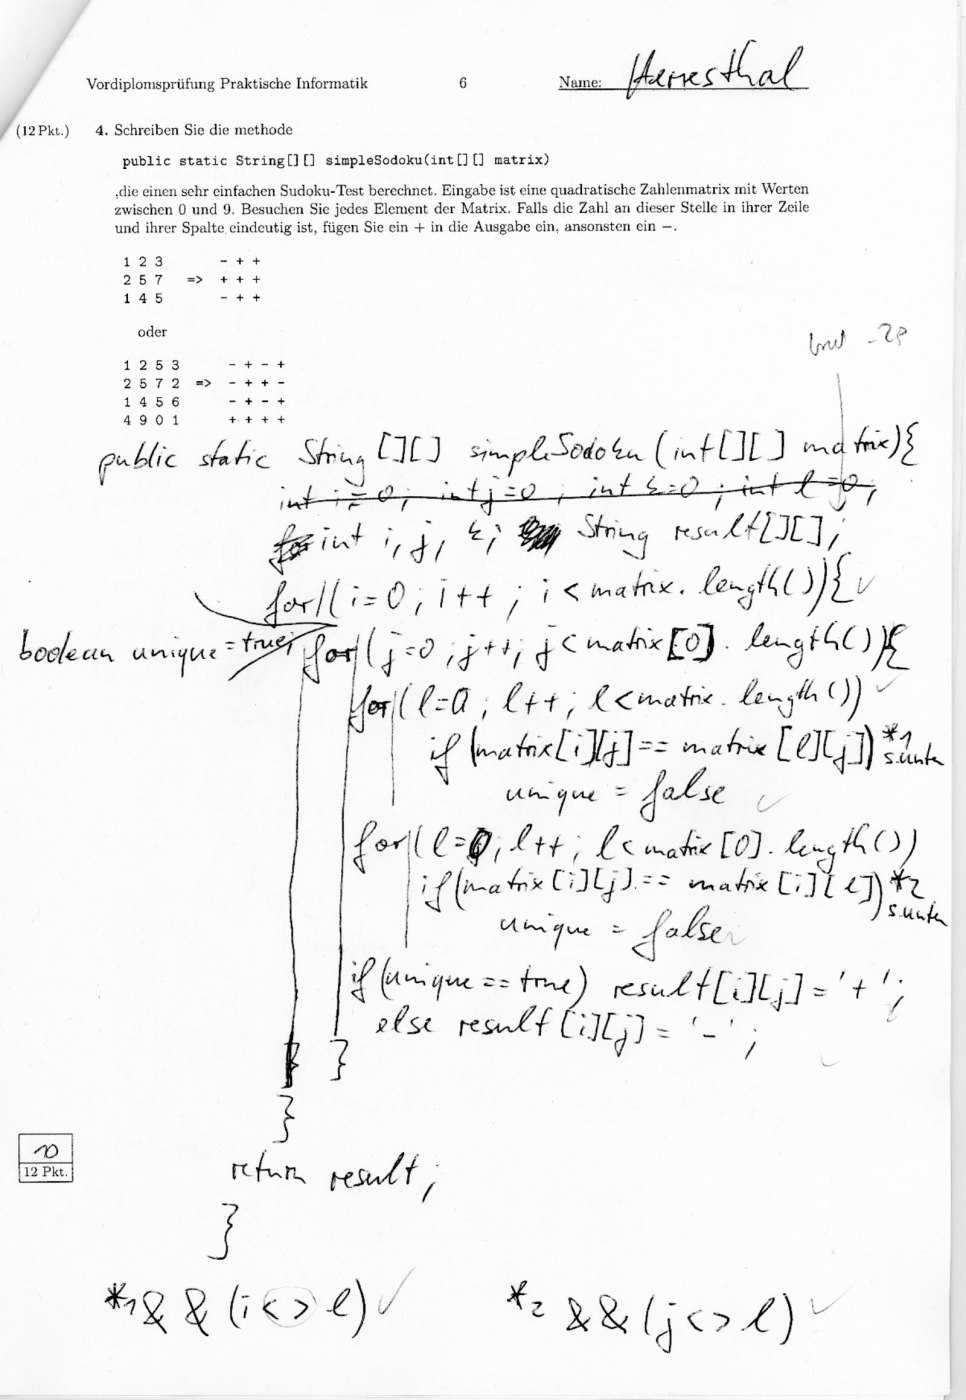 Vordiplomsprüfung Praktische Informatik 6 Name: Herresthal
(12 Pkt.) 4. Schreiben Sie die methode
public static String[][] simpleSodoku(int[][] matrix)
,die einen sehr einfachen Sudoku-Test berechnet. Eingabe ist eine quadratische Zahlenmatrix mit Werten
zwischen 0 und 9. Besuchen Sie jedes Element der Matrix. Falls die Zahl an dieser Stelle in ihrer Zeile
und ihrer Spalte eindeutig ist, fügen Sie ein + in die Ausgabe ein, ansonsten ein −.
1 2 3 - + +
2 5 7 => + + +
1 4 5 - + +
oder
1 2 5 3 - + - +
2 5 7 2 => - + + -
1 4 5 6 - + - +
4 9 0 1 + + + +
-2P
public static String [][] simpleSodoku (int[][] matrix){
int i=0; int j=0; int k=0; int l=0;
int i, j, k; String result[][];
for (i=0; i++; i<matrix.length()){
boolean unique=true; for (j=0; j++; j<matrix[0].length()){
for (l=0; l++; l<matrix.length())
if (matrix[i][j]== matrix[l][j]) *1 s.unten
unique = false
for (l=0; l++; l<matrix[0].length())
if (matrix[i][j] == matrix[i][l]) *2 s.unten
unique = false
if (unique == true) result[i][j] = '+';
else result[i][j] = '-';
} }
}
return result;
}
10
12 Pkt.
*1 && (i<>l) *2 && (j<>l)